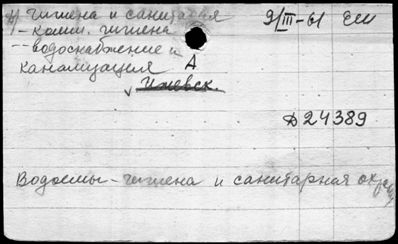 1) Гигиена и санитария 9/III-61
- комм. гигиена
-- водоснабжение и
канализация А
v Ижевск.
Д24389
Водоемы - гигиена и санитарная охрана